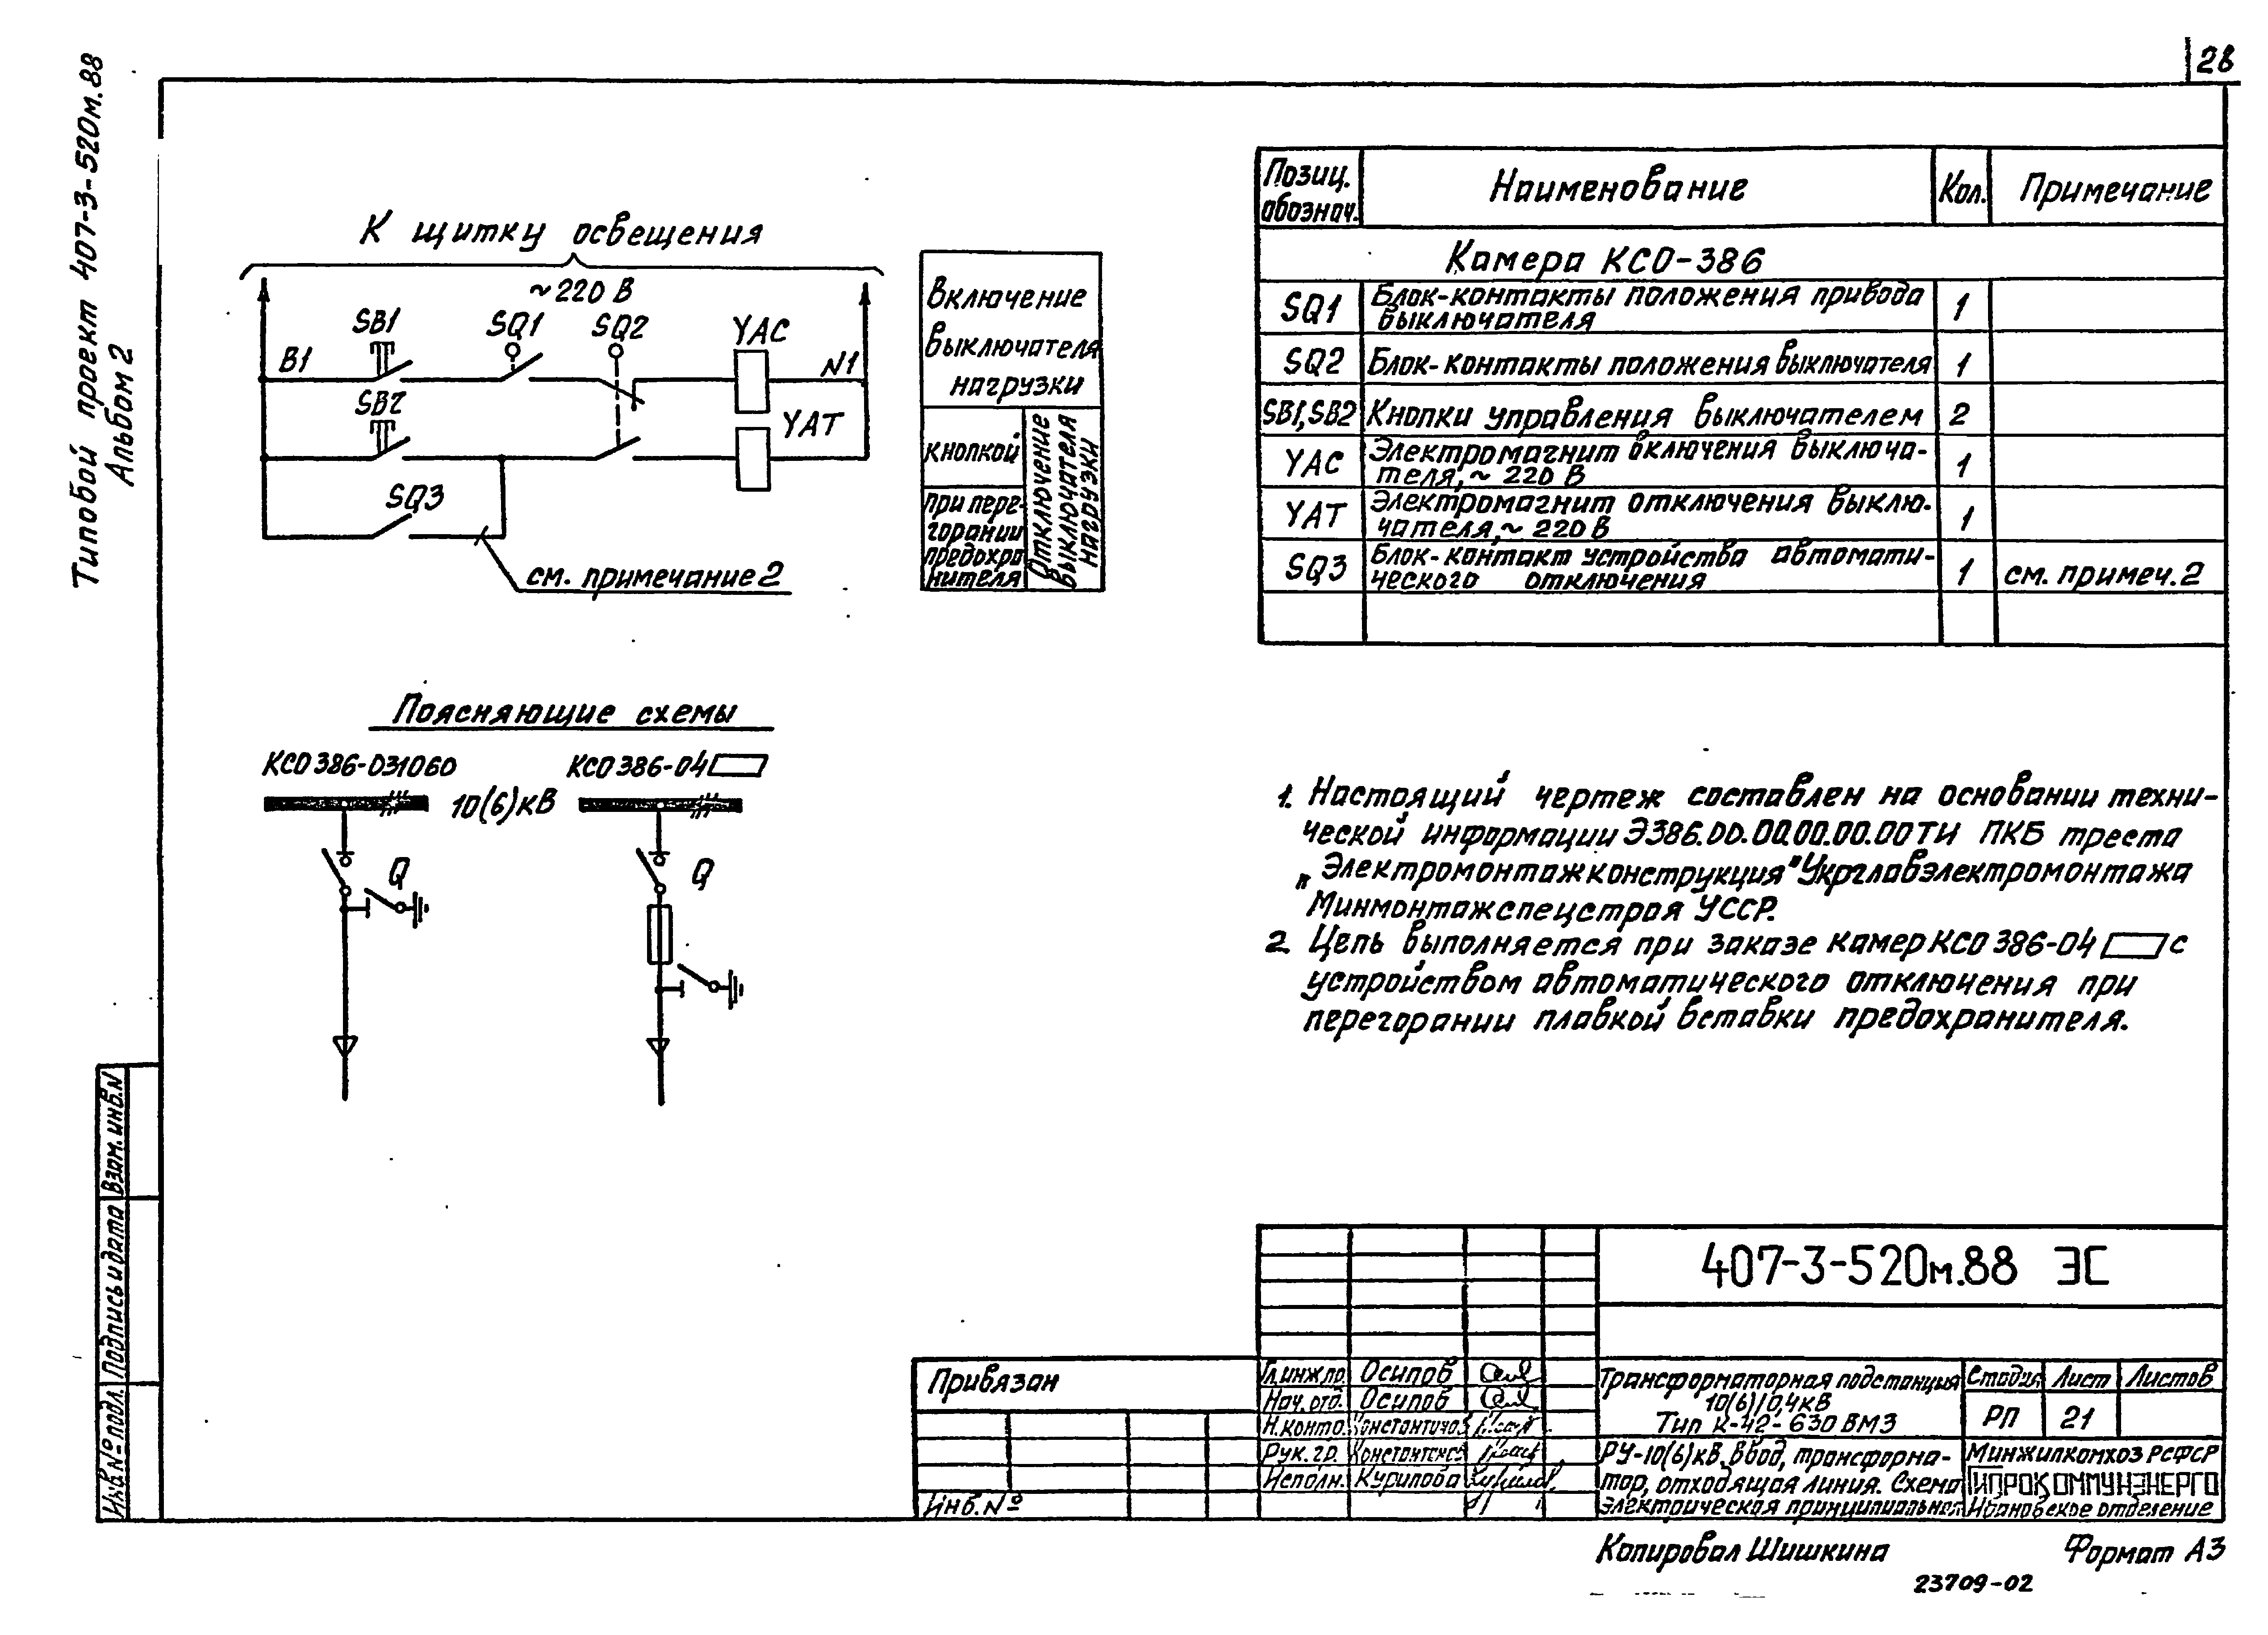 28
Типовой проект 407-3-520м.88
Альбом 2
К щитку освещения
~220 В
SB1
SQ1
SQ2
YAC
В1
N1
SB2
YAT
SQ3
см. примечание 2
Включение
выключателя
нагрузки
кнопкой
при пере-
горании
предохра
нителя
Отключение
выключателя
нагрузки
Позиц. обознач. Наименование Кол. Примечание
Камера КСО-386
SQ1 Блок-контакты положения привода выключателя 1
SQ2 Блок-контакты положения выключателя 1
SB1,SB2 Кнопки управления выключателем 2
YAC Электромагнит включения выключа-
теля,~ 220 В 1
YAT Электромагнит отключения выклю-
чателя,~ 220 В 1
SQ3 Блок-контакт устройства автомати-
ческого отключения 1 см. примеч.2
Поясняющие схемы
КСО 386-031060
КСО 386-04
10(6)кВ
Q
Q
1. Настоящий чертеж составлен на основании техни-
ческой информации Э386.00.00.00.00.00ТИ ПКБ треста
„Электромонтажконструкция" Укрглавэлектромонтажа
Минмонтажспецстроя УССР.
2 Цепь выполняется при заказе камер КСО 386-04 с
устройством автоматического отключения при
перегорании плавкой вставки предохранителя.
Взам. инв.N
Подпись и дата
Инв.№ подл.
407-3-520м.88 ЭС
Привязан
Инв.№
Гл.инж.пр. Осипов
Нач. отд. Осипов
Н.контр.
Рук. гр.
Исполн. Курилова
Трансформаторная подстанция
10(6)/0,4кВ
Тип К-42-630 ВМЗ
Стадия Лист Листов
РП 21
РУ-10(6)кВ. Ввод, трансформа-
тор, отходящая линия. Схема
электрическая принципиальная
Минжилкомхоз РСФСР
ГИПРОКОММУНЭНЕРГО
Ивановское отделение
Копировал Шишкина
Формат А3
23709-02